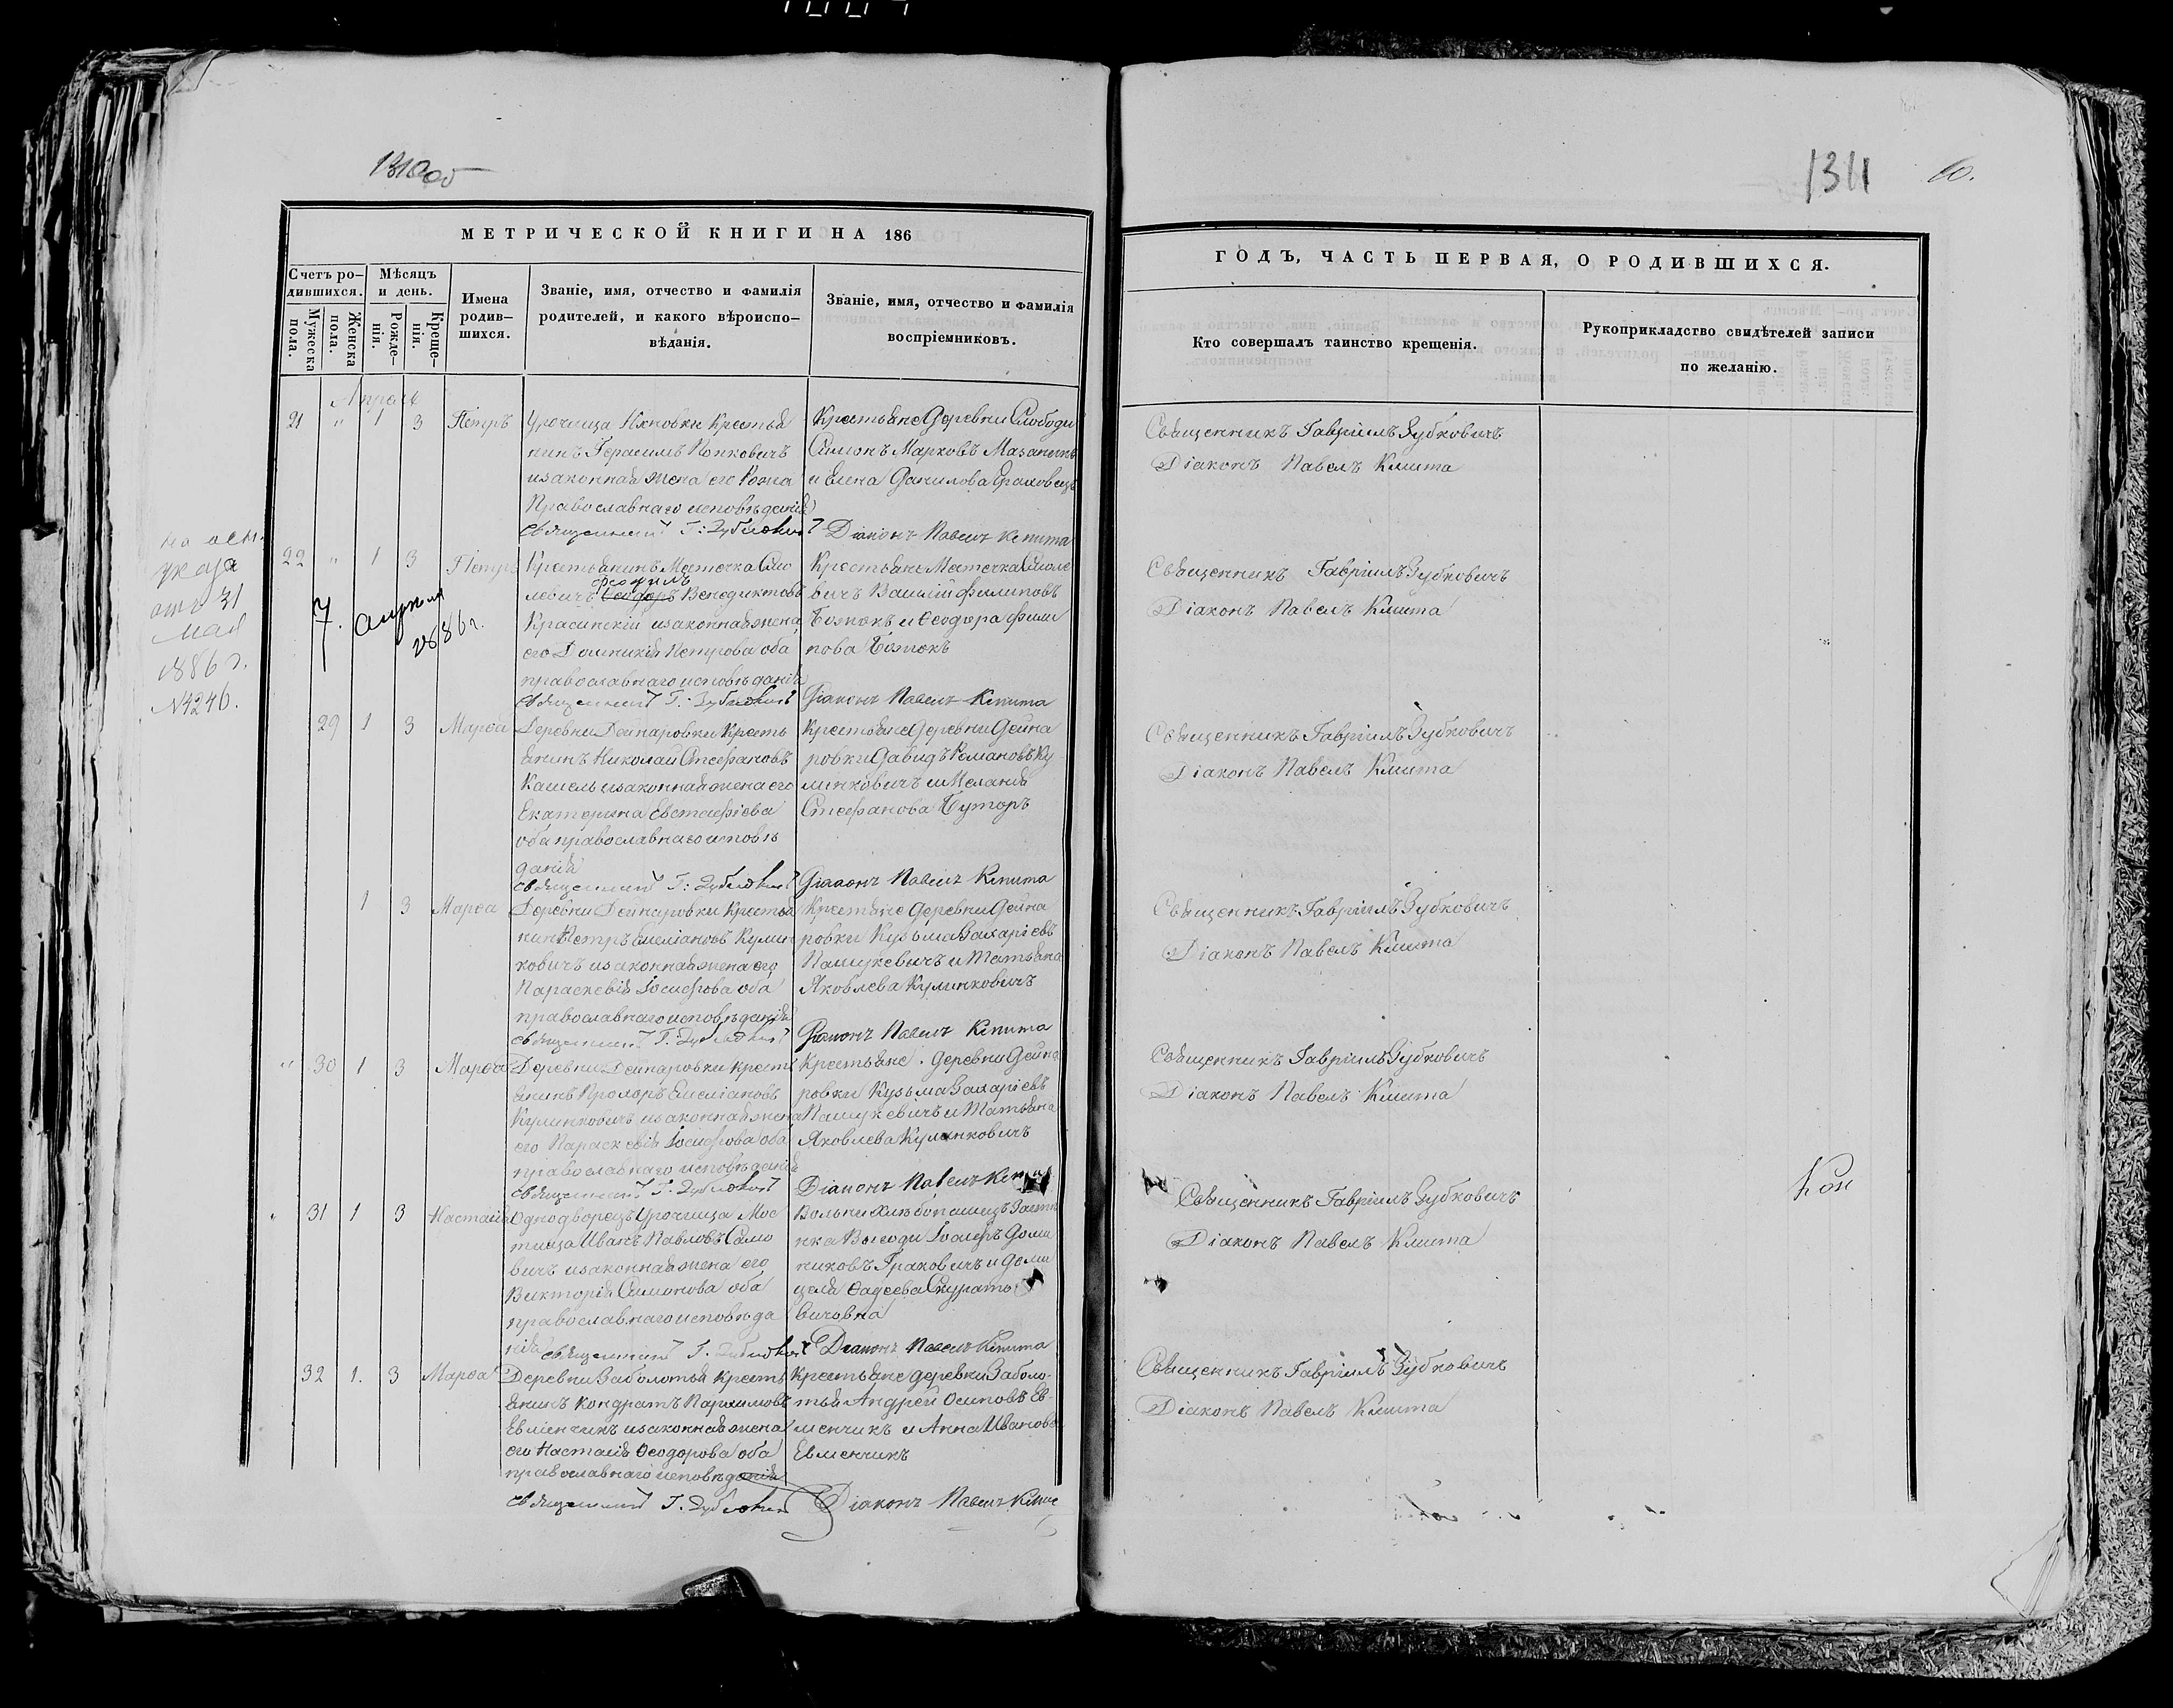 1310об
1311
60.
МЕТРИЧЕСКОЙ КНИГИ НА 186
ГОДЪ, ЧАСТЬ ПЕРВАЯ, О РОДИВШИХСЯ.
Счетъ ро-
дившихся.
Мужеска
пола.
Женска
пола.
Мѣсяцъ
и день.
Рожде-
нія.
Креще-
нія.
Имена
родив-
шихся.
Званіе, имя, отчество и фамилія
родителей, и какого вѣроиспо-
вѣданія.
Званіе, имя, отчество и фамилія
воспріемниковъ.
Кто совершалъ таинство крещенія.
Рукоприкладство свидѣтелей записи
по желанію.
Апрель
21 " 1 3 Петръ
Урочища Крестья
нинъ Герасимъ
изаконная жена его
Православнаго исповѣданія
Священникъ Г: Зубковичъ
Крестьяне Деревни Слободы
Симонъ Марковъ
и Елена Данилова
Діаконъ Павелъ Кмита
Священникъ Гавріилъ Зубковичъ
Діаконъ Павелъ Кмита
на осн.
указа
отъ 31
мая
1886 г.
№4246.
22 " 1 3 Петръ
7. Апреля
1886 г.
Крестьянинъ Местечка Смо
Феофилъ
левичъ Ѳеодоръ Венедиктовъ
Красинскій изаконная жена
его Домникія Петрова оба
православнаго исповѣданія
Священникъ Г: Зубковичъ
Крестьяне Местечка Смоле
вичъ Василій Филиповъ
и Ѳеодора Фили
пова
Діаконъ Павелъ Кмита
Священникъ Гавріилъ Зубковичъ
Діаконъ Павелъ Кмита
29 1 3 Марѳа
Деревни Дейнаровки Кресть
янинъ Николай Стефановъ
Кашель изаконная жена его
Екатерина Евстафіева
оба православнаго исповѣ
данія
Священникъ Г: Зубковичъ
Крестьяне Деревни Дейна
ровки Давидъ Романовъ Ку
линковичъ и Меланія
Стефанова Буторъ
Діаконъ Павелъ Кмита
Священникъ Гавріилъ Зубковичъ
Діаконъ Павелъ Кмита
1 3 Марѳа
Деревни Дейнаровки Крестья
нинъ Петръ Емеліановъ Кулин
ковичъ изаконная жена его
Параскевія Іосифова оба
православнаго исповѣданія
Священникъ Г. Зубковичъ
Крестьяне Деревни Дейна
ровки Кузьма Захаріевъ
Пашукевичъ и Татьяна
Яковлева Кулинковичъ
Діаконъ Павелъ Кмита
Священникъ Гавріилъ Зубковичъ
Діаконъ Павелъ Кмита
" 30 1 3 Марѳа
Деревни Дейнаровки Кресть
янинъ Емеліановъ
Кулинковичъ изаконная жена
его Параскевія Іосифова оба
православнаго исповѣданія
Священникъ Г. Зубковичъ
Крестьяне Деревни Дейна
ровки Кузьма Захаріевъ
Пашукевичъ и Татьяна
Яковлева Кулинковичъ
Діаконъ Павелъ
Священникъ Гавріилъ Зубковичъ
Діаконъ Павелъ Кмита
" 31 1 3 Настасія
Однодворецъ Урочища Мос
тища Иванъ Павловъ
вичъ изаконная жена его
Викторія Симонова оба
православнаго исповѣда
нія Священникъ Г. Зубковичъ
Іосифъ Доми
никовъ и Доми
целя Ѳадеева Скурато
вичовна
Діаконъ Павелъ Кмита
Священникъ Гавріилъ Зубковичъ
Діаконъ Павелъ Кмита
32 1. 3 Марѳа
Деревни Заболотья Кресть
янинъ Кондратъ Пархимовъ
Евменчикъ изаконная жена
его Настасія Ѳеодорова оба
православнаго исповѣданія
Священникъ Г. Зубковичъ
Крестьяне деревни Заболо-
тья Андрей Осиповъ Ев-
менчикъ и Анна Иванова
Евменчикъ
Діаконъ Павелъ
Священникъ Гавріилъ Зубковичъ
Діаконъ Павелъ Кмита